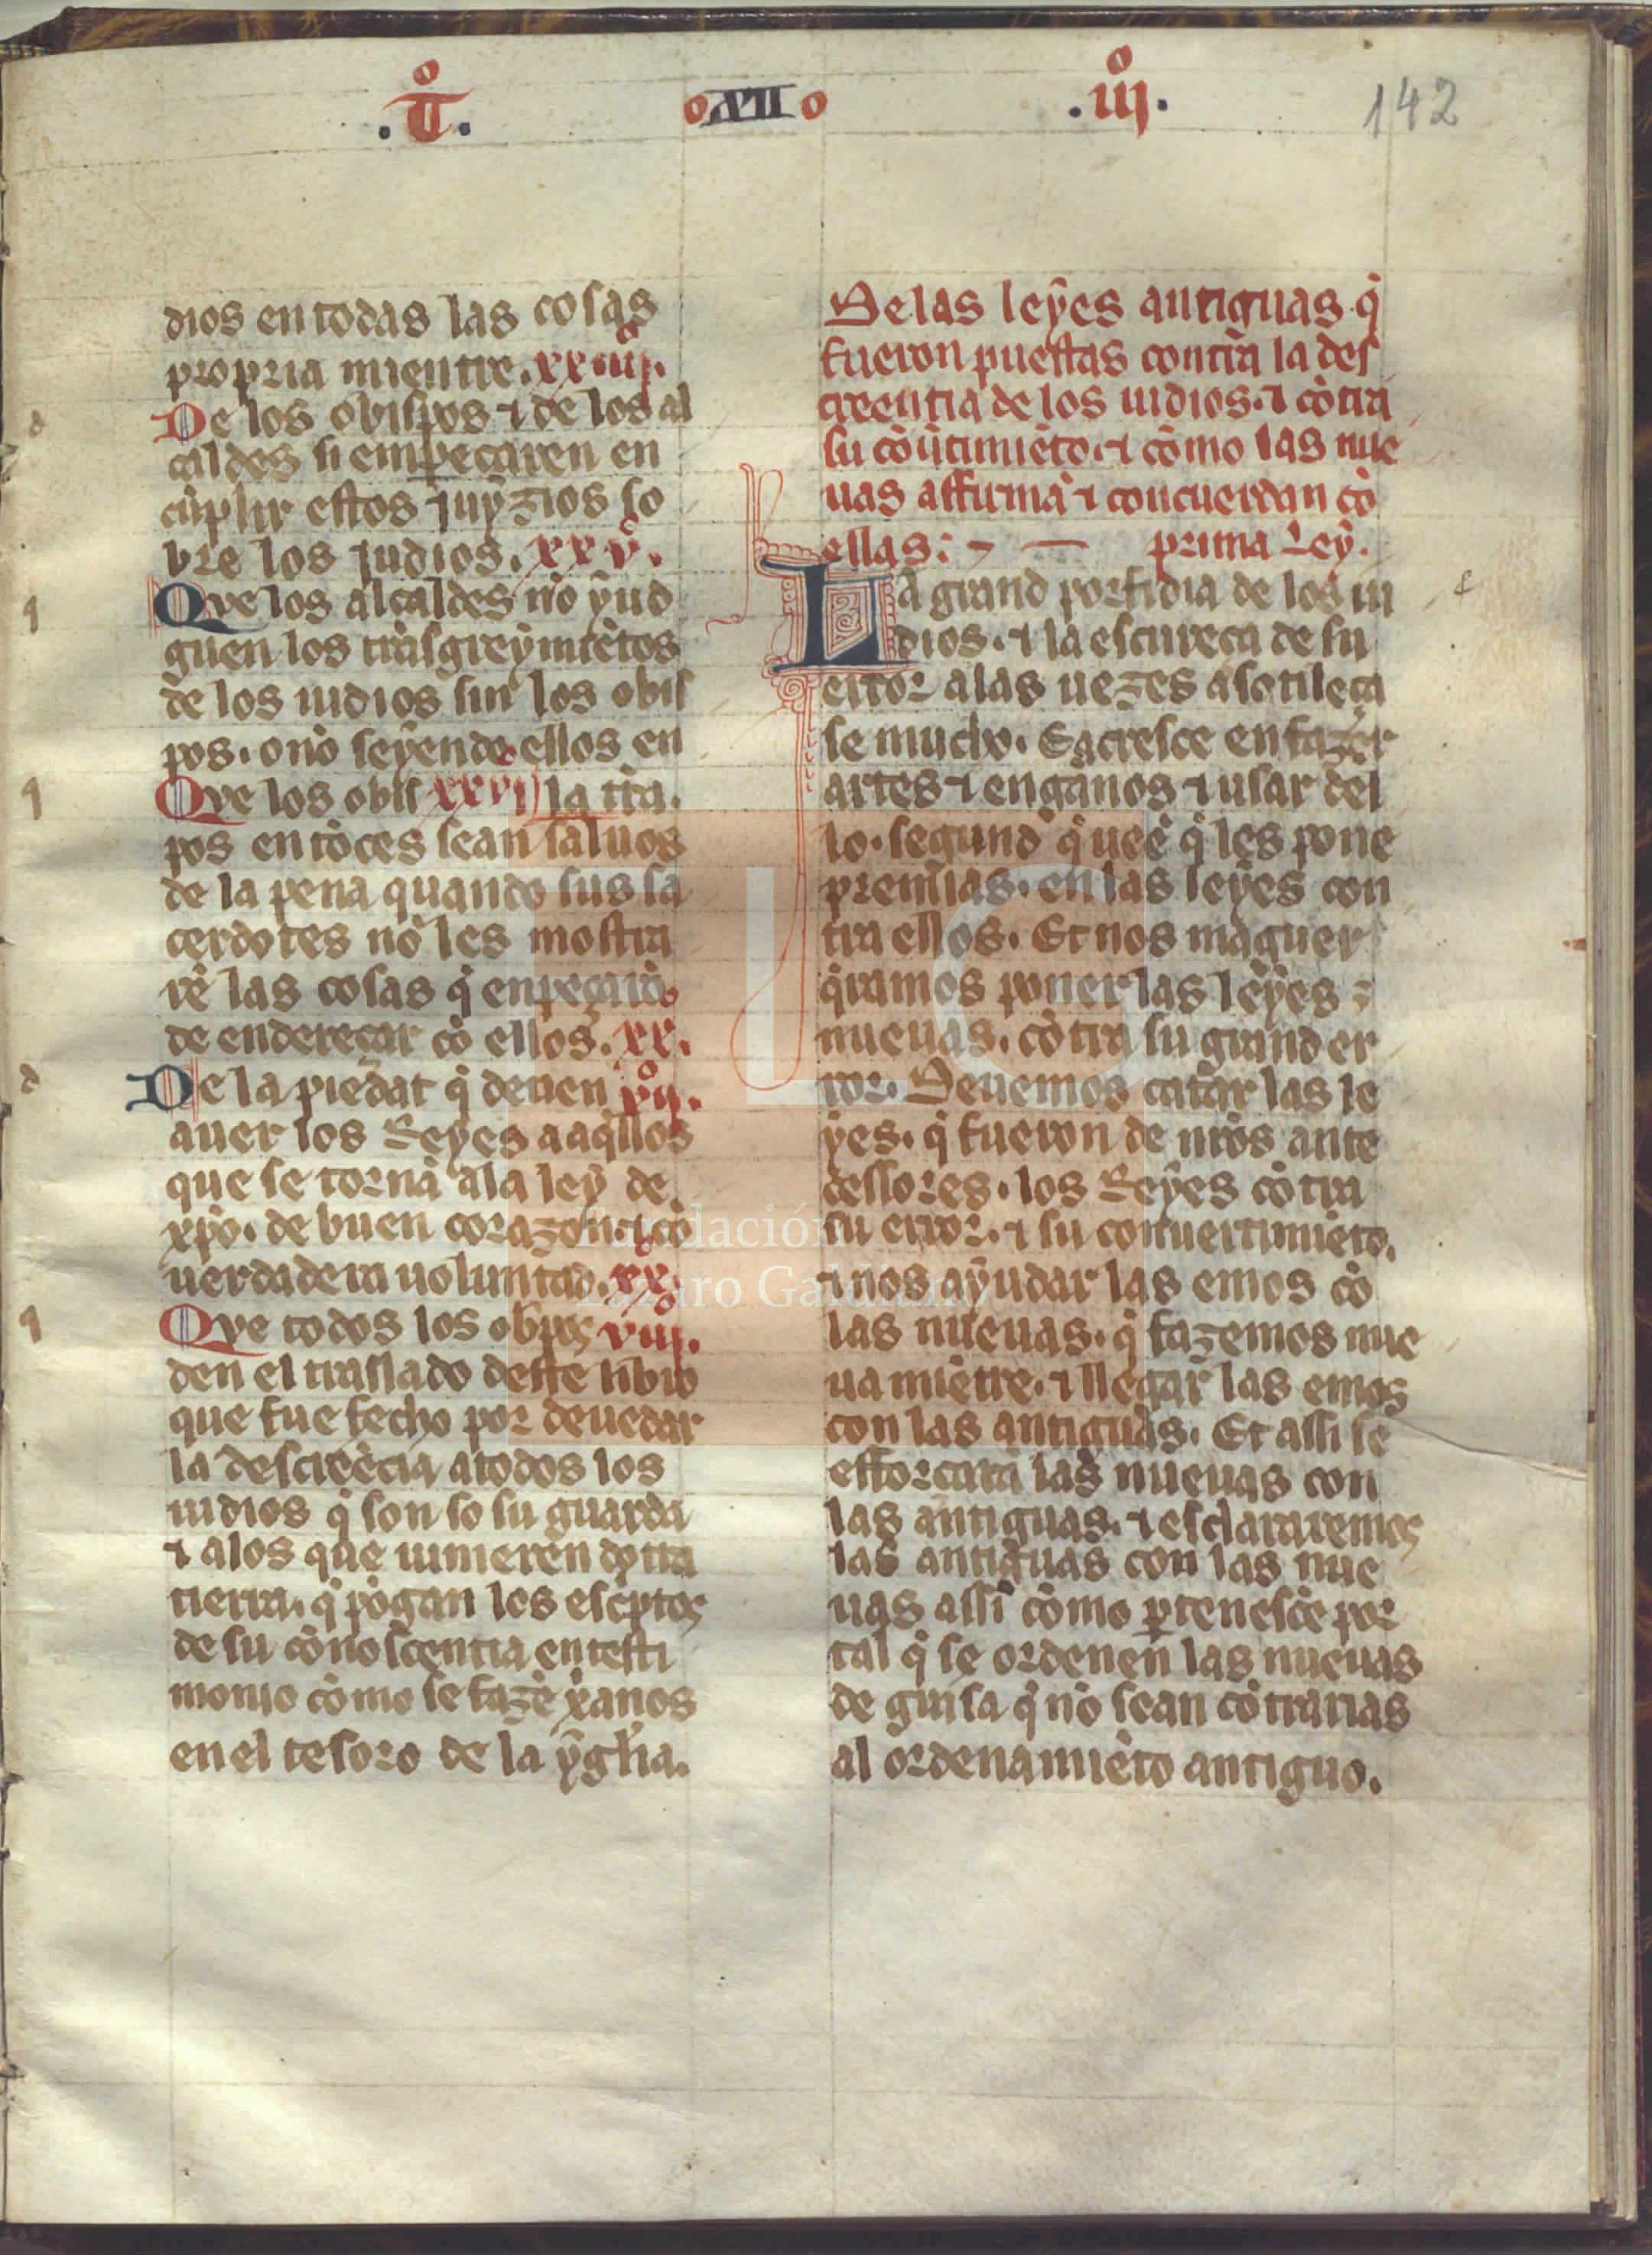 .T̊. oXIIo .iij̊. 142
dios en todas las cosas
propria mientre. xxiiij̊.
De los obispos ⁊ de los al
caldes si empeçaren en
cũplir estos juyzios so
bre los judios. xxv̊.
Que los alcaldes nõ yud
guen los trãsgreymiẽtos
de los iudios sin los obis
pos. o nõ seyendo ellos en
Que los obis xxvj̊ la t̃ra.
pos entõces sean saluos
de la pena quando sus sa
cerdotes nõ les mostra
rẽ las cosas q̃ enpeçarõ
de endereçar cõ ellos. xx.
De la piedat q̃ deuen vij̊.
auer los Reyes a aq̃llos
que se tornã a la ley de
xp̃o. de buen corazon. ⁊ cõ
uerdadera uoluntad. xx
Que todos los ob̃pos viij̊.
den el traslado deste libro
que fue fecho por deuedar
la descreẽcia a todos los
iudios q̃ son so su guarda
⁊ a los que uinieren dotra
tierra. q̃ põgan los esc̃ptos
de su cõnoscentia en testi
monio cõmo se fazẽ xp̃anos
en el tesoro de la ygl̃ia.
De las leyes antiguas q̃
fueron puestas contra la des
creentia de los iudios. ⁊ cõtra
su cõũtimiẽto. ⁊ cõmo las nue
uas affirmã ⁊ concuerdan cõ
ellas: prima Ley.
La grand porfidia de los iu
dios. ⁊ la escureça de su
error a las uezes asotileça
se mucho. E acresce en fazer
artes ⁊ engãnos ⁊ usar del
lo. segund q̃ ueẽ q̃ les pone
premias. en las leyes con
tra ellos. Et nos maguer
q̃ramos poner las leyes
nueuas. cõtra su grand er
ror. Deuemos catar las le
yes. q̃ fueron de nr̃os ante
cessores. los Reyes cõtra
su error. ⁊ su conuertimiẽto.
⁊ nos ayudar las emos cõ
las nueuas. q̃ fazemos nue
ua miẽtre. ⁊ llegar las emos
con las antiguas. Et assi se
efforcara las nueuas con
las antiguas. ⁊ esclararemos
las antiguas con las nue
uas assi cõmo ꝑtenesce por
tal q̃ se ordenen las nueuas
de guisa q̃ nõ sean cõtrarias
al ordenamiẽto antiguo.
Fundación
Lázaro Galdiano